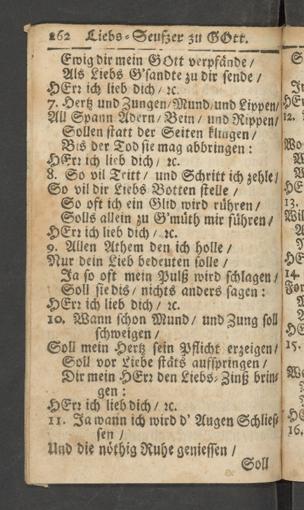 262 Liebs-Seufzer zu GOtt.
Ewig dir mein GOtt verpfände/
Als Liebs G'sandte zu dir sende/
HErr ich lieb dich/ ꝛc.
7. Hertz und Zungen/Mund/und Lippen/
All Spann Adern/ Bein/ und Rippen/
Sollen statt der Seiten klingen/
Bis der Tod sie mag abbringen:
HErr ich lieb dich/ ꝛc.
8. So vil Tritt/ und Schritt ich zehle/
So vil dir Liebs Botten stelle/
So oft ich ein Glid wird rühren/
Solls allein zu G'müth mir führen/
HErr ich lieb dich/ ꝛc.
9. Allen Athem den ich holle/
Nur dein Lieb bedeuten solle/
Ja so oft mein Pulß wird schlagen/
Soll sie dis/ nichts anders sagen:
HErr ich lieb dich/ ꝛc.
10. Wann schon Mund/ und Zung soll
schweigen/
Soll mein Hertz sein Pflicht erzeigen/
Soll vor Liebe stäts aufspringen/
Dir mein HErr den Liebs-Zinß brin-
gen:
HErr ich lieb dich/ ꝛc.
11. Ja wann ich wird d' Augen Schlies-
sen/
Und die nöthig Ruhe geniessen/
Soll
12.
13.
14.
15.
16.